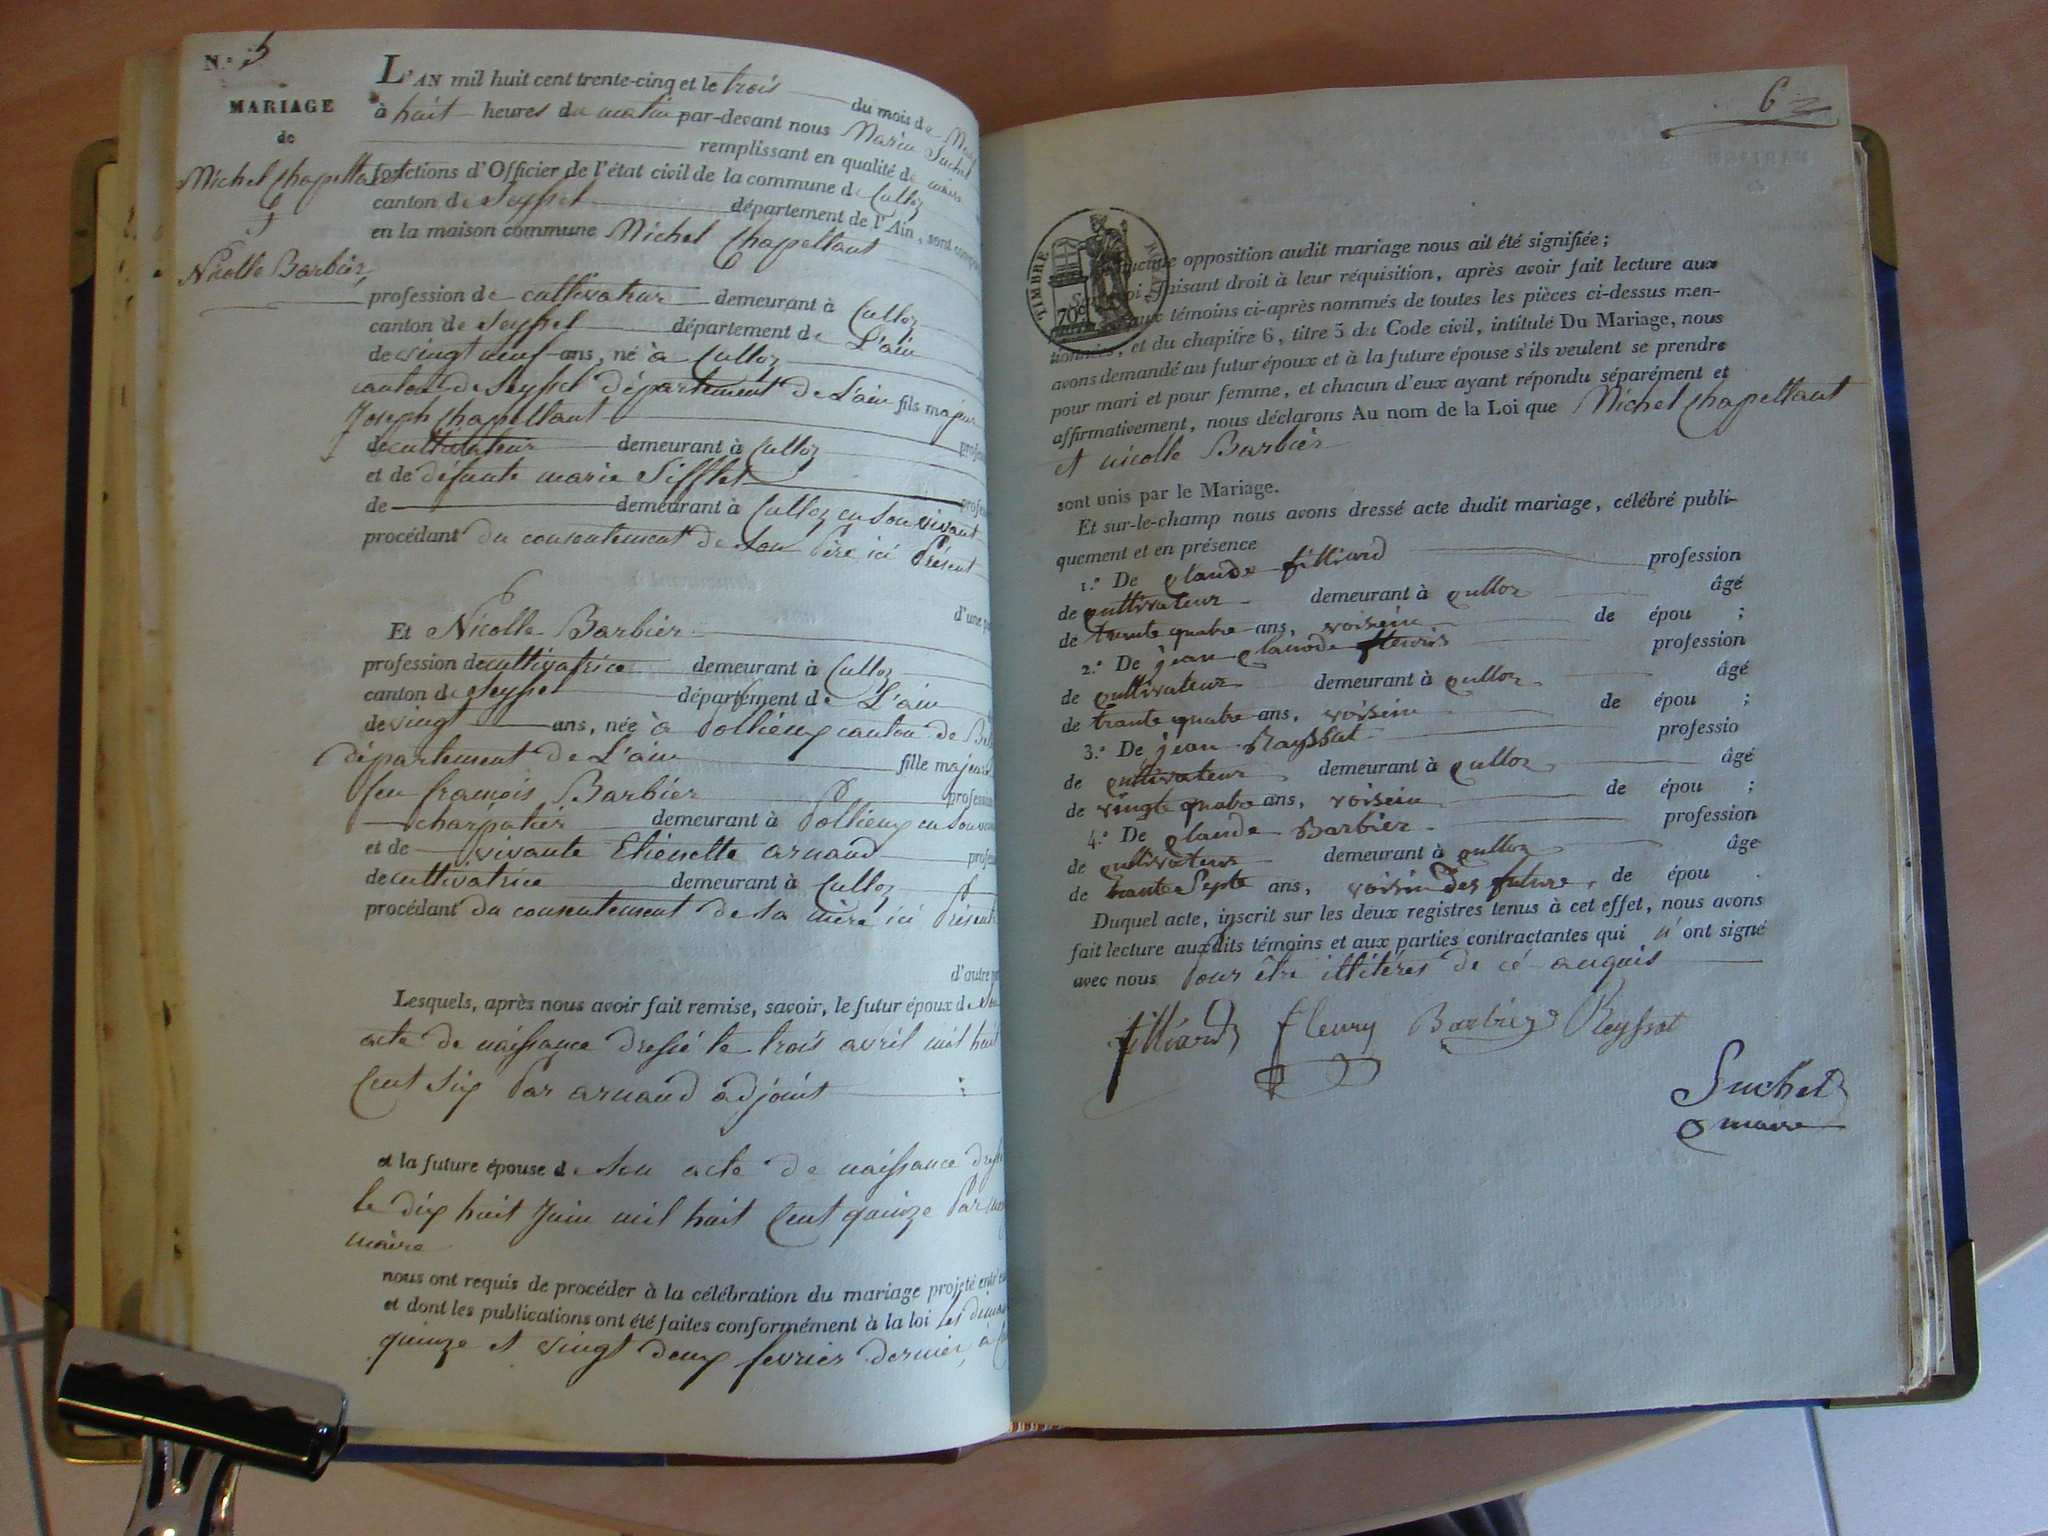 N.° 5
MARIAGE
de
Michel Chapellant
&
Nicolle Barbier,
L'AN mil huit cent trente-cinq et le trois du mois de
à huit heures du matin par-devant nous Marin Suchet
remplissant en qualité de maire
fonctions d'Officier de l'état civil de la commune de Culloz
canton de Seyssel département de l'Ain, sont
en la maison commune Michel Chapellant
profession de cultivateur demeurant à Culloz
canton de Seyssel département de L'ain
de vingt neuf ans, né à Culloz
canton de Seyssel département de L'ain fils majeur
Joseph Chapellant
de cultivateur demeurant à Culloz
et de défunte marie Sifflet
de demeurant à Culloz en son vivant
procédant du consentement de son Père ici Présent
d'une
Et Nicolle Barbier
profession de cultivatrice demeurant à Culloz
canton de Seyssel département de L'ain
de vingt ans, née à Pollieux canton de
département de L'ain fille majeure
feu francois Barbier profession
charpatier demeurant à Pollieux en son
et de vivante Etienette arnaud
de cultivatrice demeurant à Culloz
procédant du consentement de sa mère ici Présente
d'autre
Lesquels, après nous avoir fait remise, savoir, le futur époux de
acte de naissance dressé le trois avril mil huit
Cent Six Par arnaud adjoint
et la future épouse de son acte de naissance
le dix huit Juin mil huit Cent quinze Par
maire
nous ont requis de procéder à la célébration du mariage projeté
et dont les publications ont été faites conformément à la loi les
quinze et vingt deux fevrier dernier, à
6
TIMBRE
70c
opposition audit mariage nous ait été signifiée ;
faisant droit à leur réquisition, après avoir fait lecture aux
aux témoins ci-après nommés de toutes les pièces ci-dessus men-
tionnés, et du chapitre 6, titre 5 du Code civil, intitulé Du Mariage, nous
avons demandé au futur époux et à la future épouse s'ils veulent se prendre
pour mari et pour femme, et chacun d'eux ayant répondu séparément et
affirmativement, nous déclarons Au nom de la Loi que Michel Chapellant
et nicolle Barbier
sont unis par le Mariage.
Et sur-le-champ nous avons dressé acte dudit mariage, célébré publi-
quement et en présence
1.° De claude filliard profession
de cultivateur demeurant à culloz âgé
de trante quatre ans, voisein de épou ;
2.° De jean claude fleuris profession
de cultivateur demeurant à culloz âgé
de trante quatre ans, voisein de épou ;
3.° De jean Rayssat professio
de cultivateur demeurant à culloz âgé
de vingte quatre ans, voisein de épou ;
4.° De claude Barbier profession
de cultivateur demeurant à culloz âge
de trante Septe ans, voisin des future, de épou .
Duquel acte, inscrit sur les deux registres tenus à cet effet, nous avons
fait lecture auxdits témoins et aux parties contractantes qui n'ont signé
avec nous Pour être illitéres de cé anquis
filliard fleury Barbier Reyssat
Suchet
maire